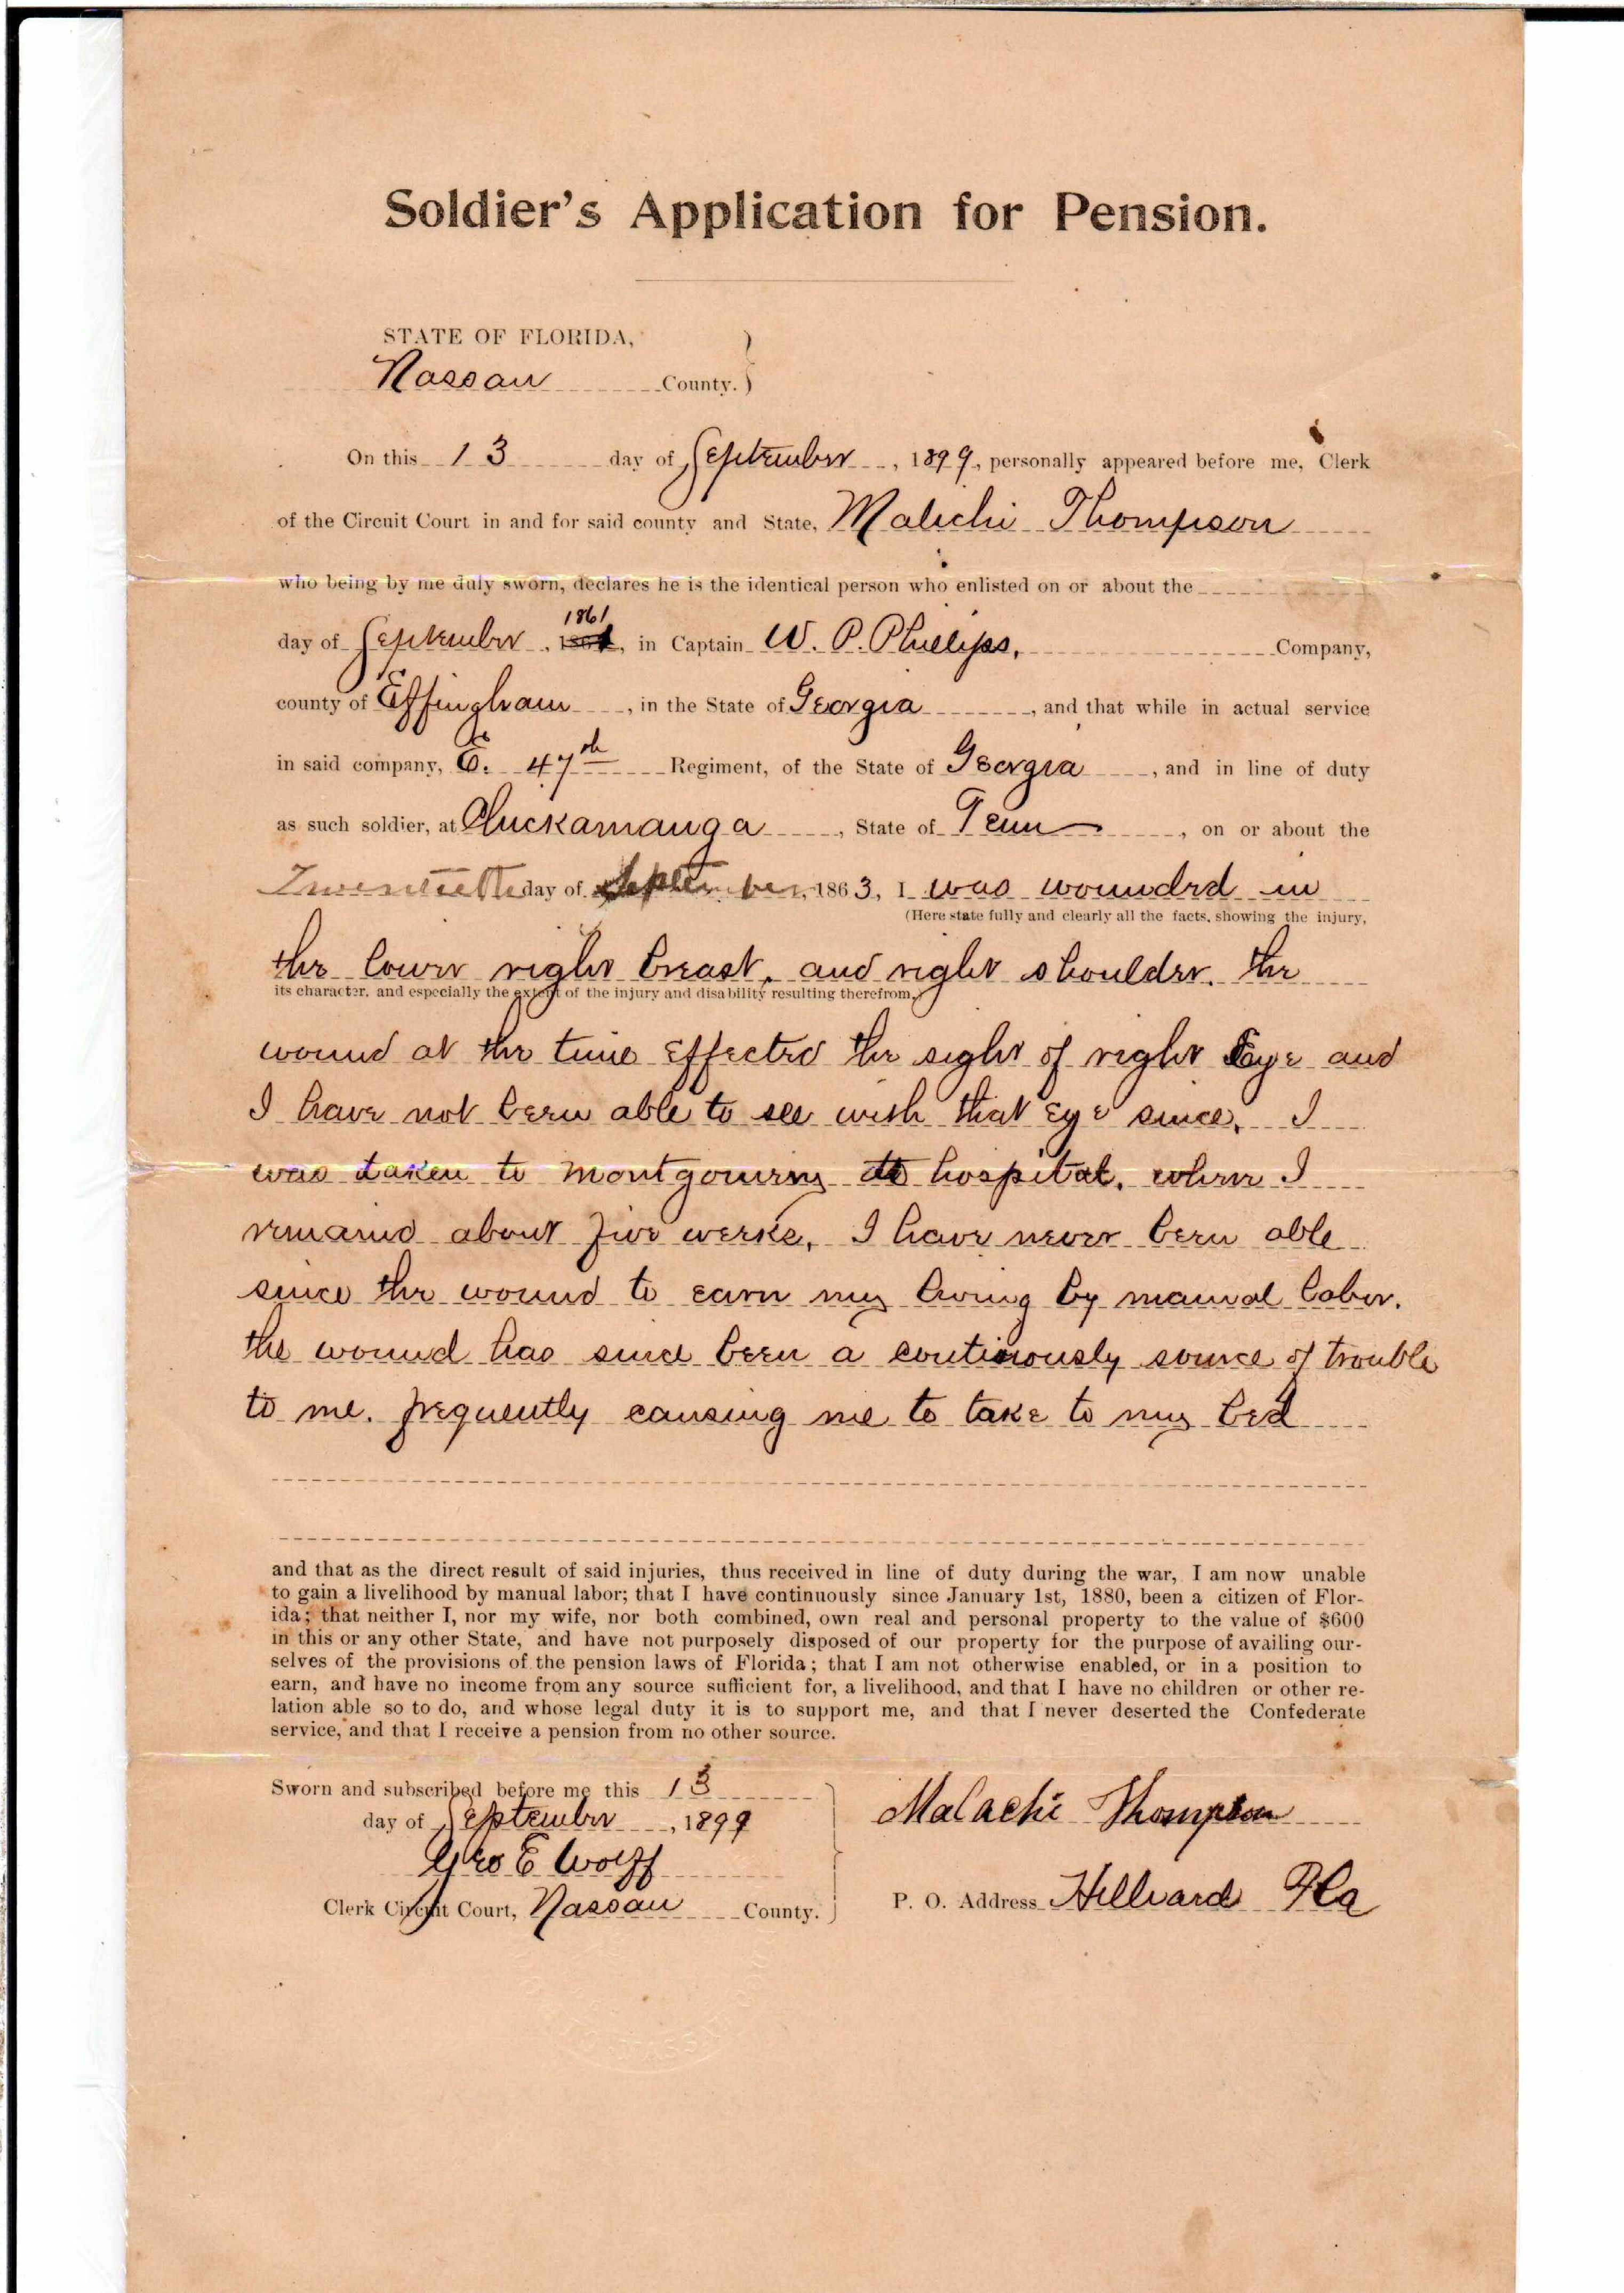 Soldier's Application for Pension.
STATE OF FLORIDA,
Nassau County.
On this 13 day of September, 1899, personally appeared before me, Clerk
of the Circuit Court in and for said county and State, Malichi Thompson
who being by me duly sworn, declares he is the identical person who enlisted on or about the
1861
day of September, 1861, in Captain W. P. Phillips, Company,
county of Effingham, in the State of Georgia, and that while in actual service
in said company, E. 47th Regiment, of the State of Georgia, and in line of duty
as such soldier, at Chuckamauga, State of Tenn, on or about the
Twentieth day of September, 1863, I was wounded in
(Here state fully and clearly all the facts, showing the injury,
the lower right breast, and right shoulder. the
its character, and especially the extent of the injury and disability resulting therefrom.)
wound at the time Effected the sight of right Eye and
I have not been able to see with that Eye since, I
was taken to Montgomery hospital. where I
remaind about five weeks, I have never been able
since the wound to earn my living by manual labor.
the wound has since been a continously source of trouble
to me. frequently causing me to take to my bed
and that as the direct result of said injuries, thus received in line of duty during the war, I am now unable
to gain a livelihood by manual labor; that I have continuously since January 1st, 1880, been a citizen of Flor-
ida; that neither I, nor my wife, nor both combined, own real and personal property to the value of $600
in this or any other State, and have not purposely disposed of our property for the purpose of availing our-
selves of the provisions of the pension laws of Florida; that I am not otherwise enabled, or in a position to
earn, and have no income from any source sufficient for, a livelihood, and that I have no children or other re-
lation able so to do, and whose legal duty it is to support me, and that I never deserted the Confederate
service, and that I receive a pension from no other source.
Sworn and subscribed before me this 13
day of September, 1899
Geo E Wolff
Clerk Circuit Court, Nassau County.
Malachi Thompson
P. O. Address Hilliard Fla